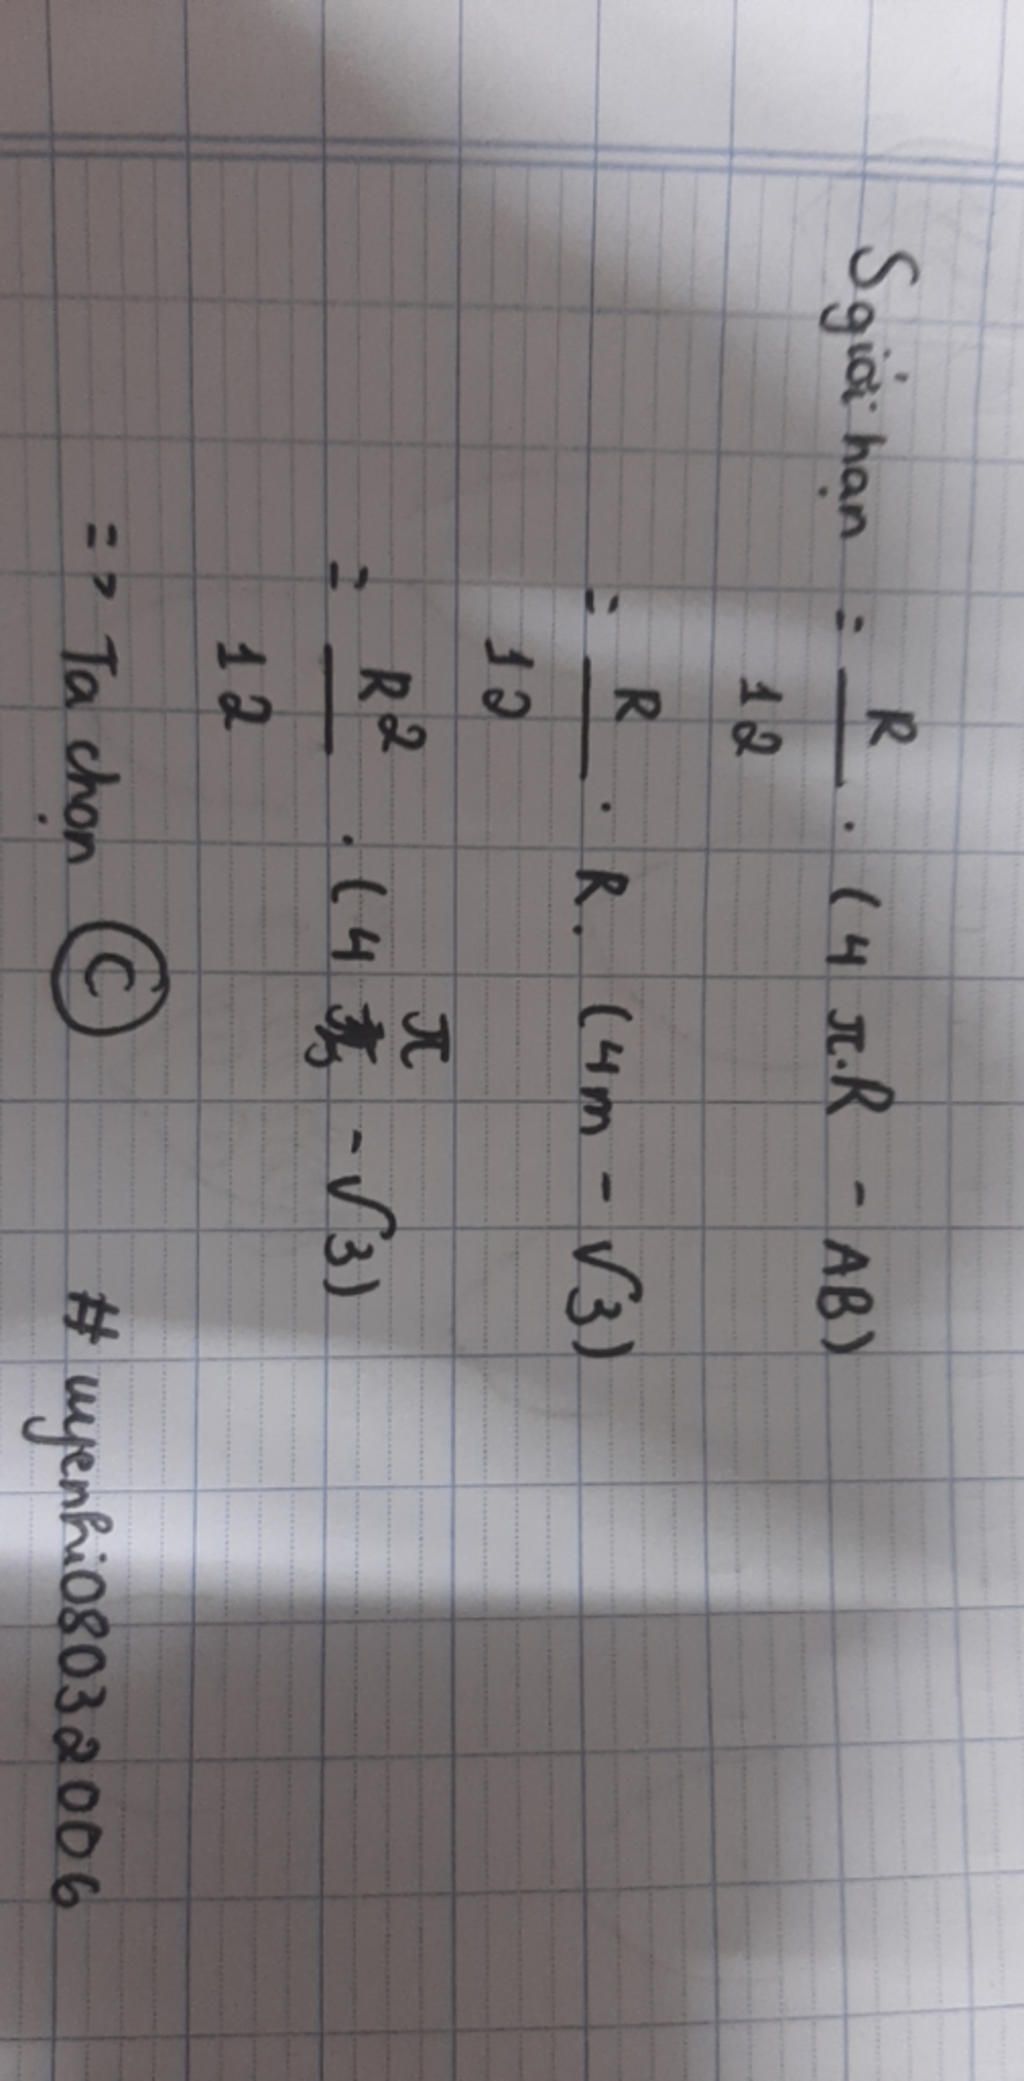 S giới hạn = R/12 . (4 π.R - AB)
= R/12 . R. (4m - √3)
= R2/12 . (4 π - √3)
=> Ta chọn C # uyenhi08032006